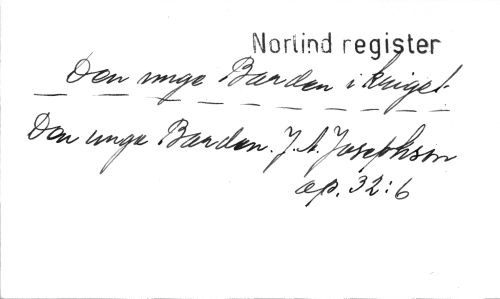 Norlind register
Den unga Barden i kriget
Den unga Barden. J. A. Josephson
op. 32:6